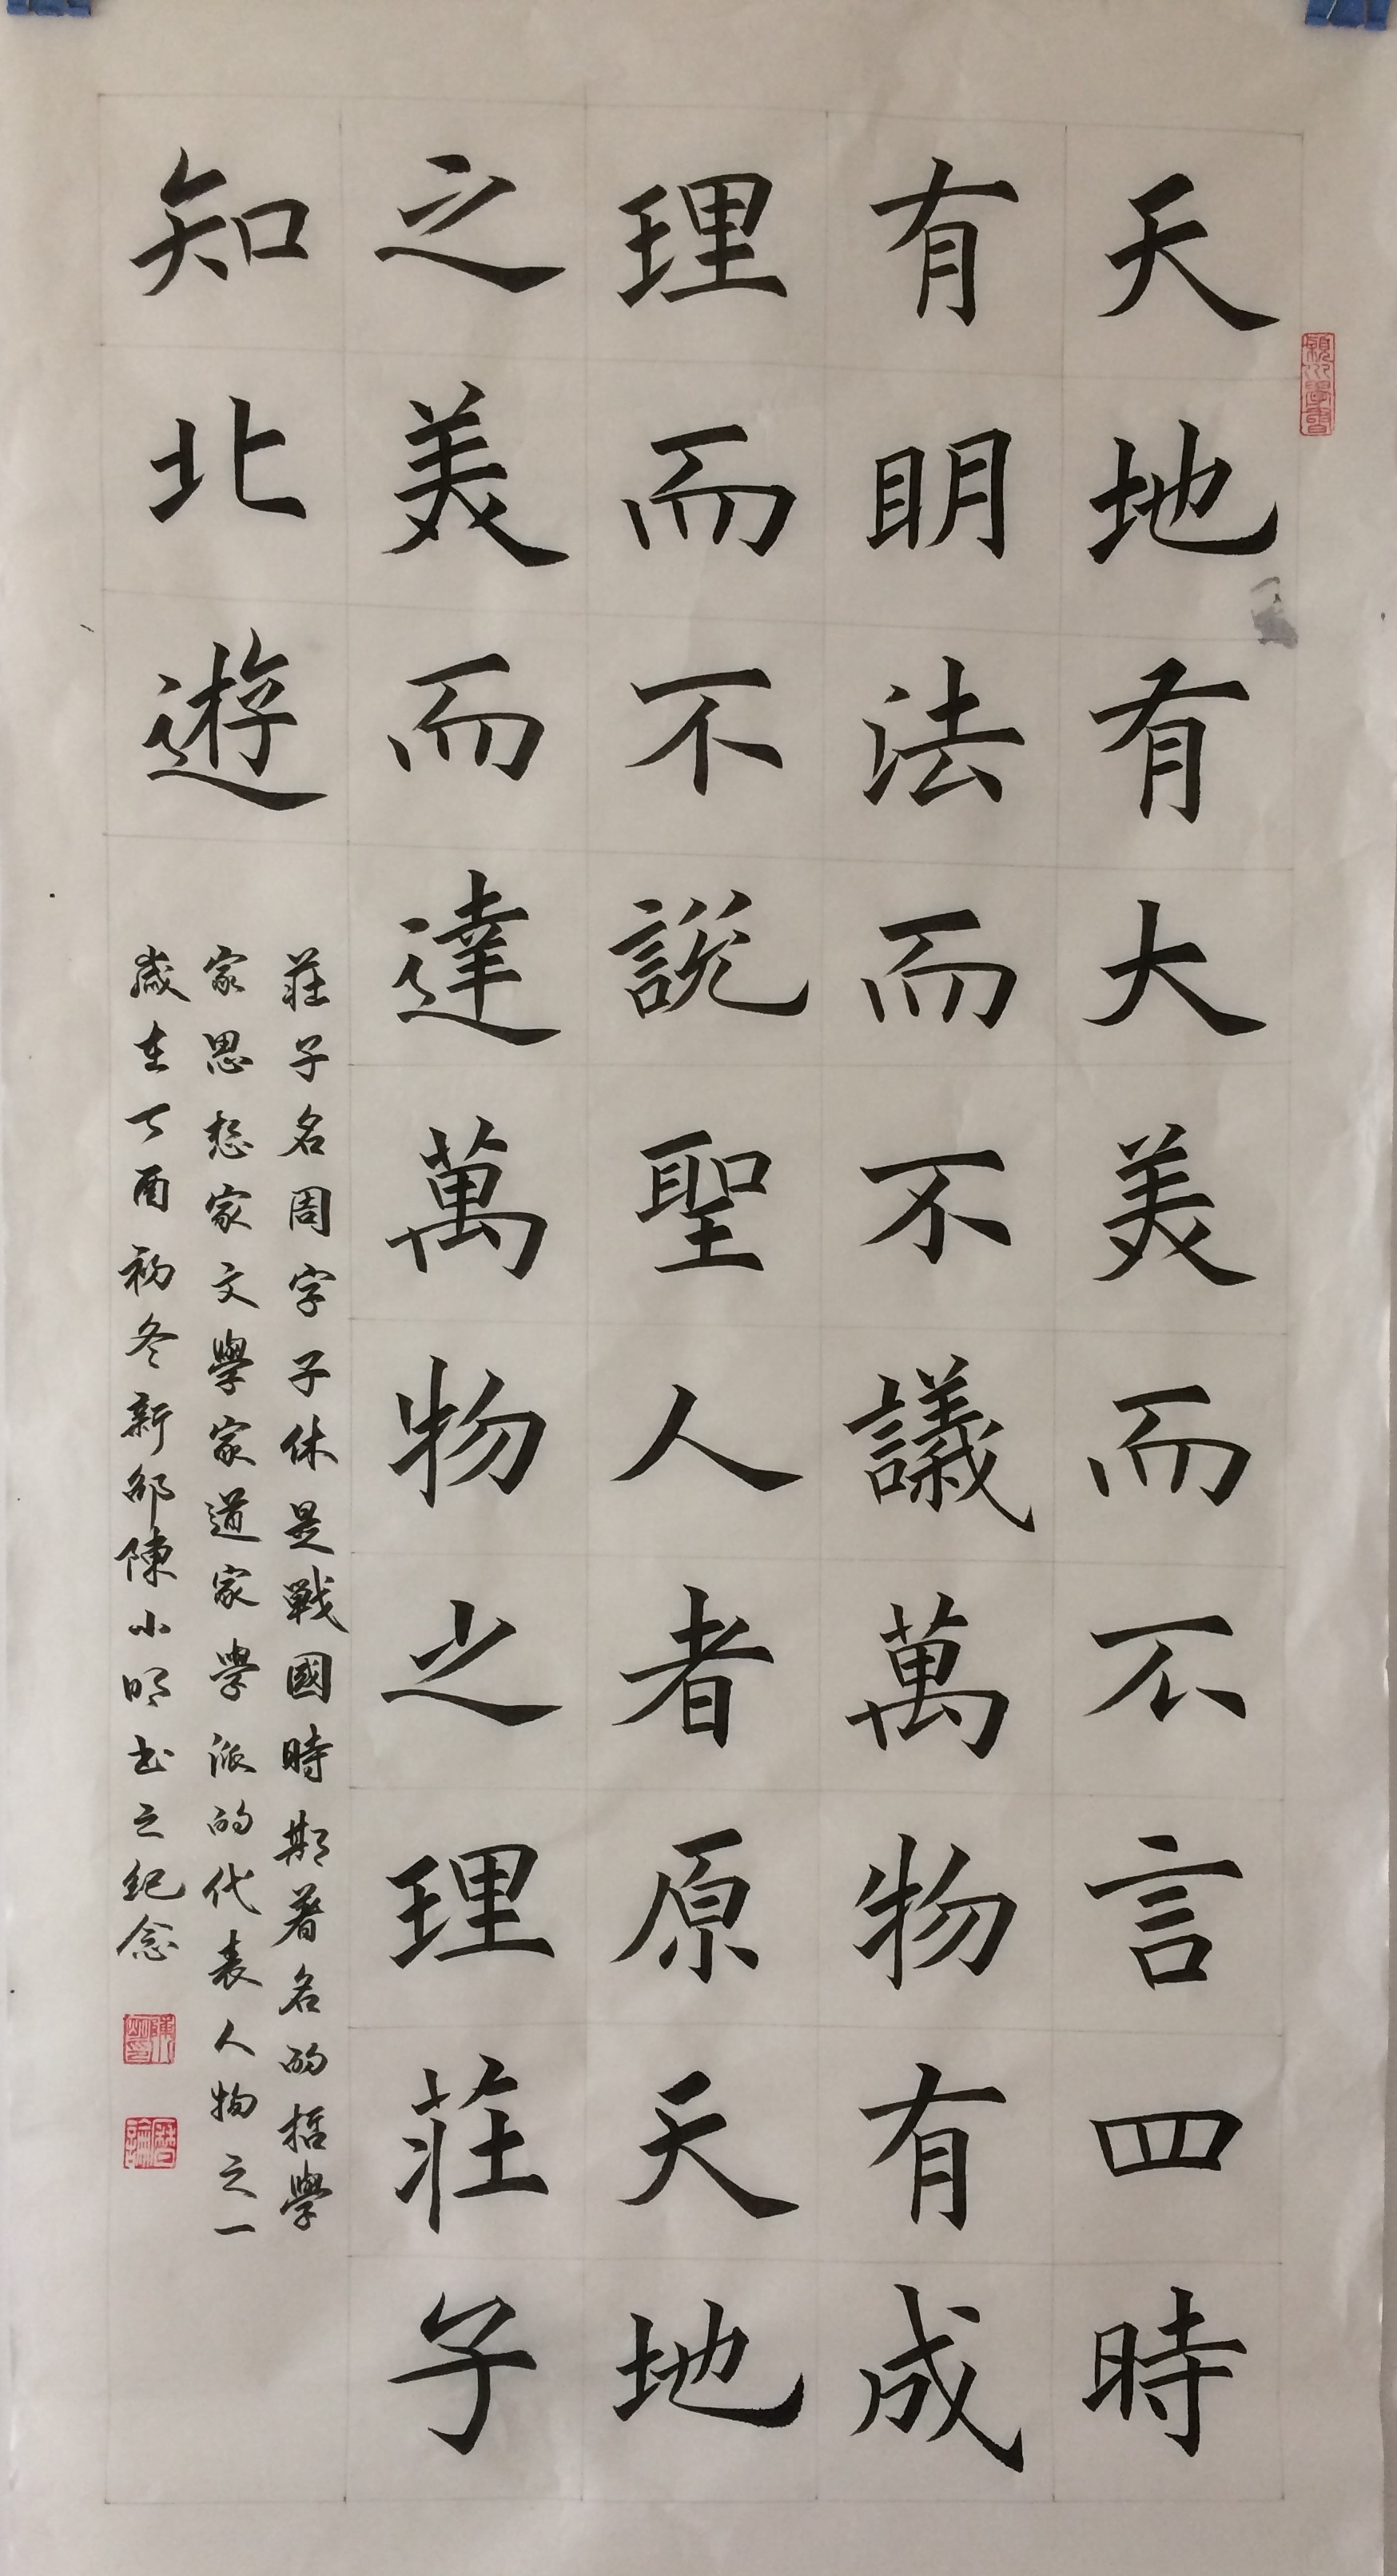 天地有大美而不言四時
有明法而不議萬物有成
理而不說聖人者原天地
之美而達萬物之理莊子
知北遊
莊子名周字子休是戰國時期著名的哲學
家思想家文學家道家學派的代表人物之一
歲在丁酉初冬新邵陳小明书之紀念